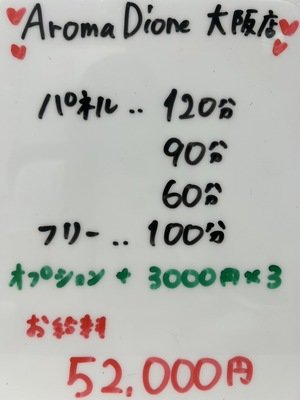 Aroma Dione 大阪店
パネル‥120分
90分
60分
フリー‥100分
オプション + 3000円×3
お給料
52,000円